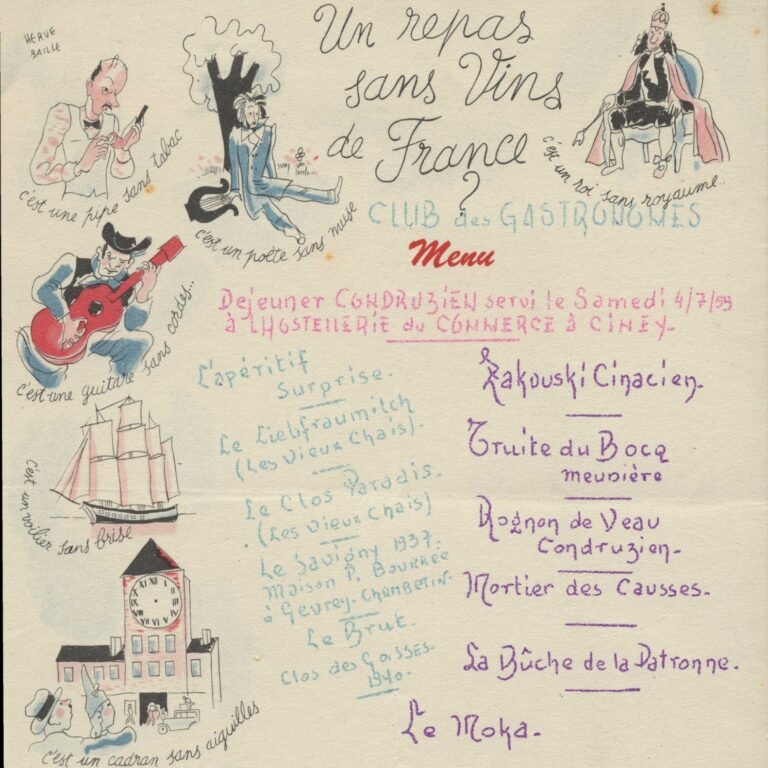 HERVE
BAILLE
Un repas
sans Vins
de France
?
c'est une pipe sans tabac
c'est un poète sans muse
c'est un roi sans royaume..
CLUB des GASTRONOMES
Menu
Dejeuner CONDRUZIEN servi le Samedi 4/7/59
à l'HOSTELLERIE du COMMERCE à CINEY.
c'est une guitare sans cordes...
c'est un voilier sans brise
c'est un cadran sans aiguilles
L'apéritif
Surprise.
Le Liebfraumilch
(Les Vieux Chais).
Le Clos Paradis.
(Les Vieux Chais)
Le Savigny 1937.
Maison P. Bourée
à Gevrey-Chambertin.
Le Brut.
Clos des Gosses.
1940.
Zakouski Cinacien.
Truite du Bocq
meunière
Rognon de Veau
Condruzien.
Mortier des Causses.
La Bûche de la Patronne.
Le Moka.